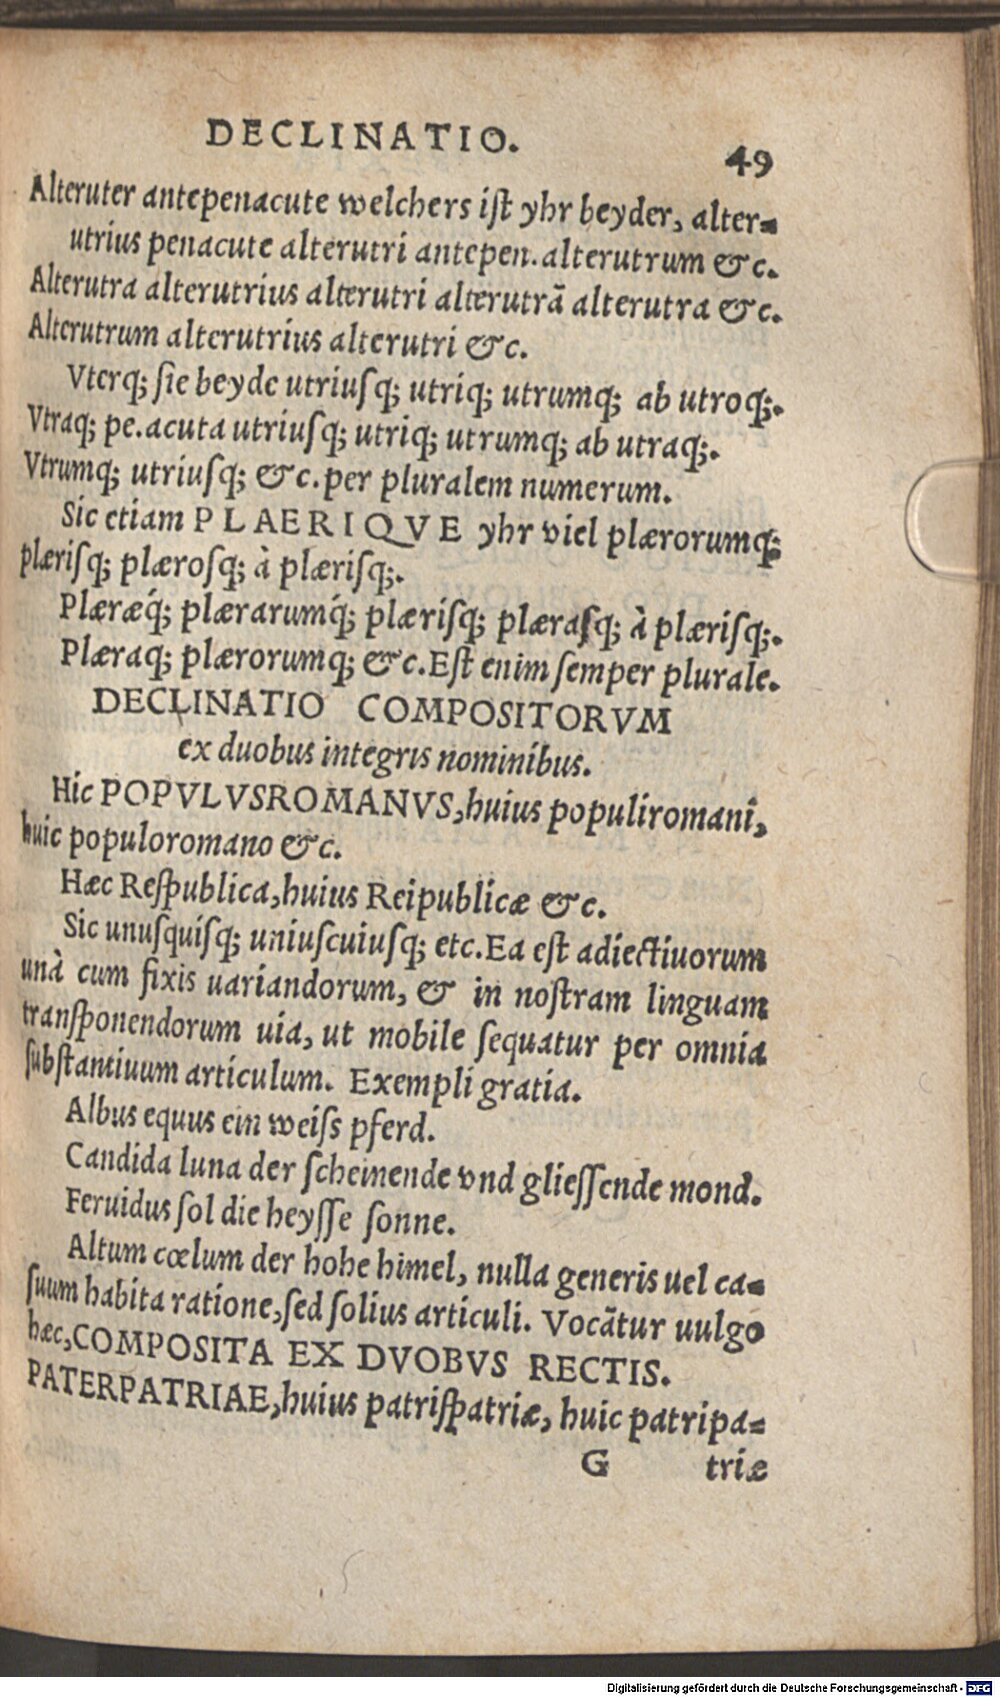 DECLINATIO.
49
Alteruter antepenacute welchers iſt yhr beyder, alter-
utrius penacute alterutri antepen. alterutrum &c.
Alterutra alterutrius alterutri alterutrã alterutra &c.
Alterutrum alterutrius alterutri &c.
Vterq; ſie beyde utriuſq; utriq; utrumq; ab utroq;.
Vtraq; pe. acuta utriuſq; utriq; utrumq; ab utraq;.
Vtrumq; utriuſq; &c. per pluralem numerum.
Sic etiam PLAERIQVE yhr viel plærorumq;
plæriſq; plæroſq; à plæriſq;.
Plæræq́; plærarumq́; plæriſq; plæraſq; à plæriſq;.
Plæraq; plærorumq; &c. Eſt enim ſemper plurale.
DECLINATIO COMPOSITORVM
ex duobus integris nominibus.
Hic POPVLVSROMANVS, huius populiromani,
huic populoromano &c.
Hæc Reſpublica, huius Reipublicæ &c.
Sic unuſquiſq; uniuſcuiuſq; etc. Ea eſt adiectiuorum
unà cum fixis uariandorum, & in noſtram linguam
tranſponendorum uia, ut mobile ſequatur per omnia
ſubſtantiuum articulum. Exempli gratia.
Albus equus ein weiſs pferd.
Candida luna der ſcheinende vnd glieſſende mond.
Feruidus ſol die heyſſe ſonne.
Altum cœlum der hohe himel, nulla generis uel ca-
ſuum habita ratione, ſed ſolius articuli. Vocãtur uulgo
hæc, COMPOSITA EX DVOBVS RECTIS.
PATERPATRIAE, huius patriſpatriæ, huic patripa-
G triæ
Digitalisierung gefördert durch die Deutsche Forschungsgemeinschaft - DFG